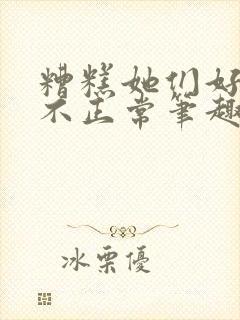 糟糕她们好
不正常笔趣
冰栗優